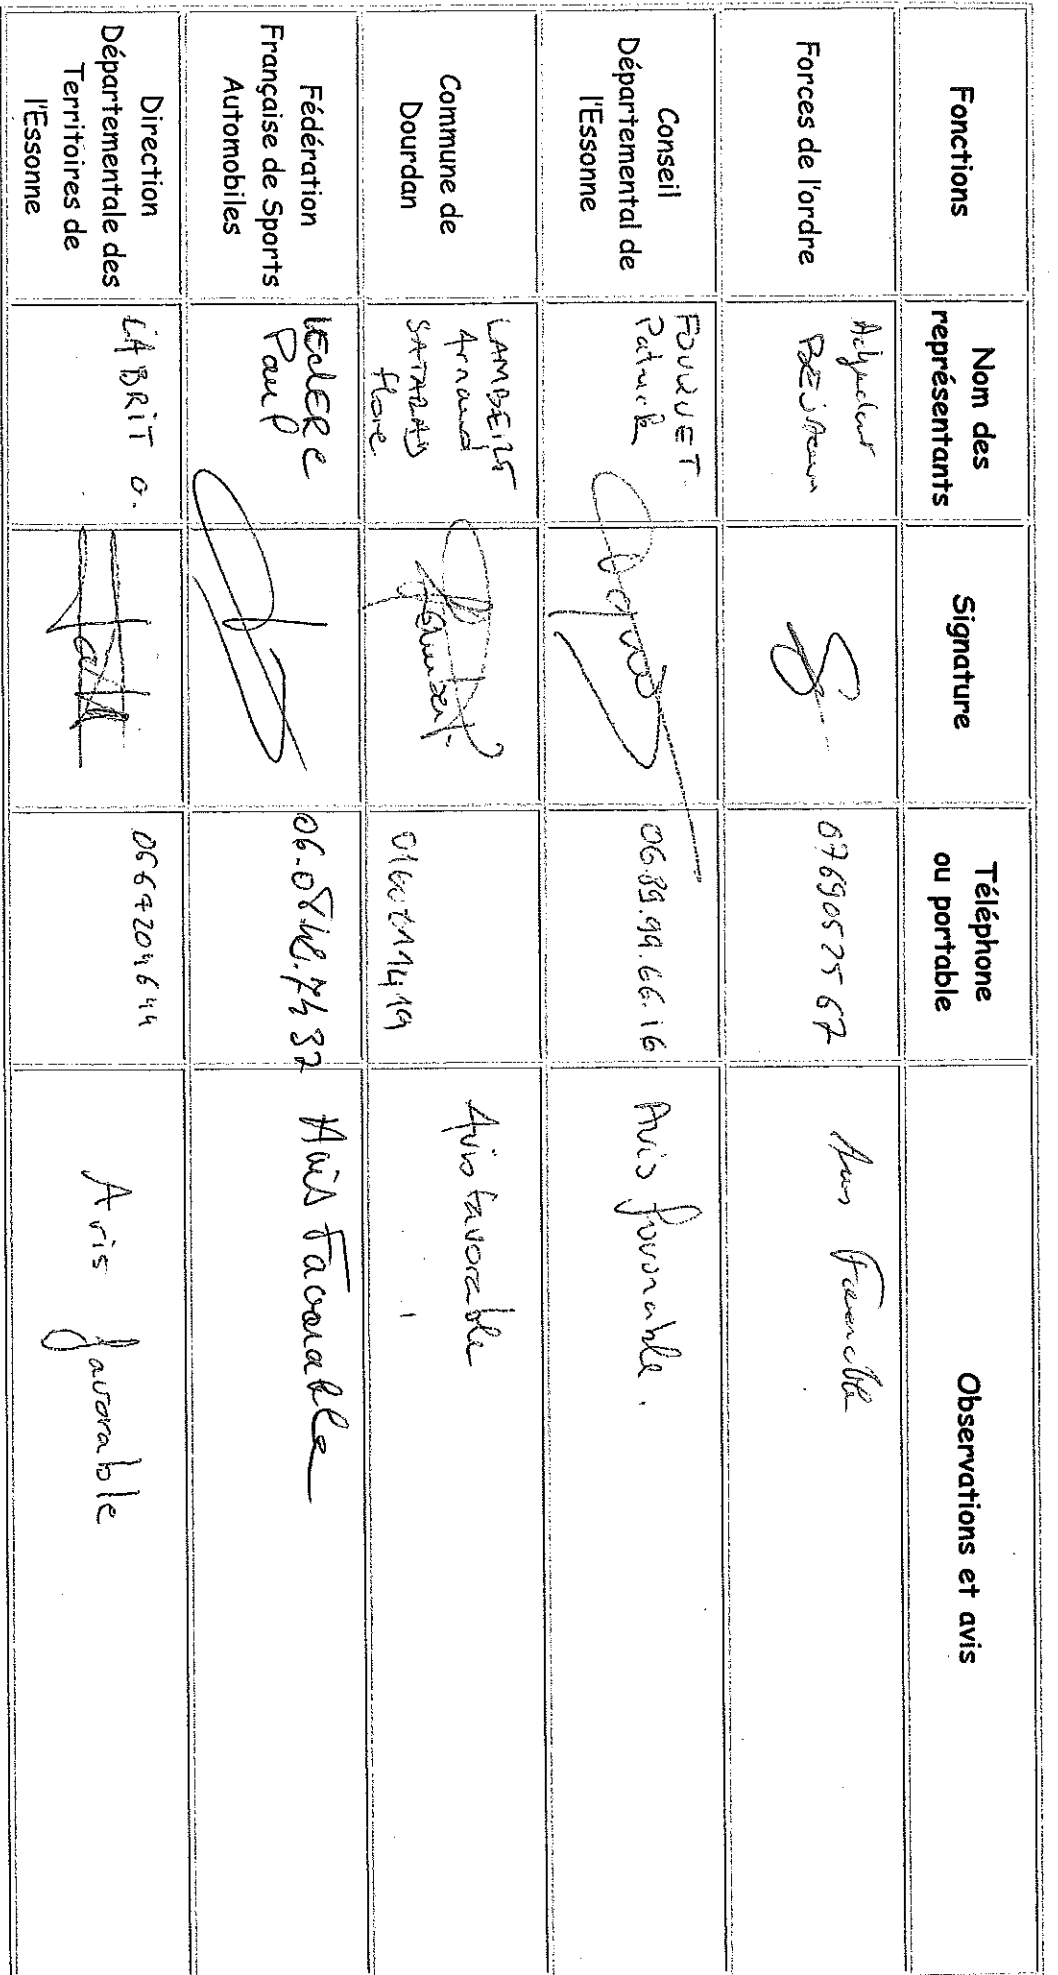 Fonctions
Nom des
représentants
Signature
Téléphone
ou portable
Observations et avis
Forces de l'ordre
0769052567
Conseil
Départemental de
l'Essonne
FOUQUET
Patrick
06.89.99.66.16
Avis favorable.
Commune de
Dourdan
LAMBERT
Arnaud
Flore
Avis favorable
Fédération
Française de Sports
Automobiles
LECLERC
Paul
Avis Favorable
Direction
Départementale des
Territoires de
l'Essonne
LABRIT O.
Avis favorable